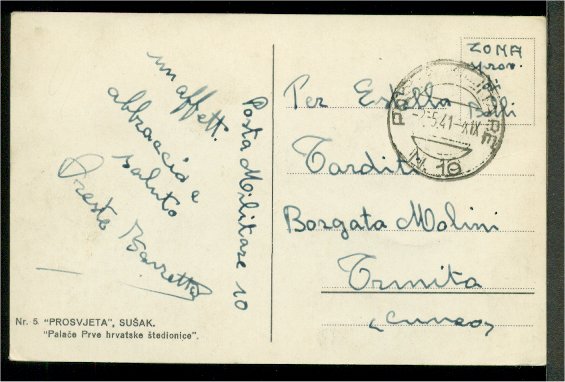 un affett.
abbraccio e
saluto
Oreste Barretta
Posta Militare 10
Nr. 5 "PROSVJETA", SUŠAK.
"Palače Prve hrvatske štedionice".
ZONA
sprov.
5.41-XIX
N. 10
Per Estella
Tardit
Borgata Molini
Trinita
(Cuneo)